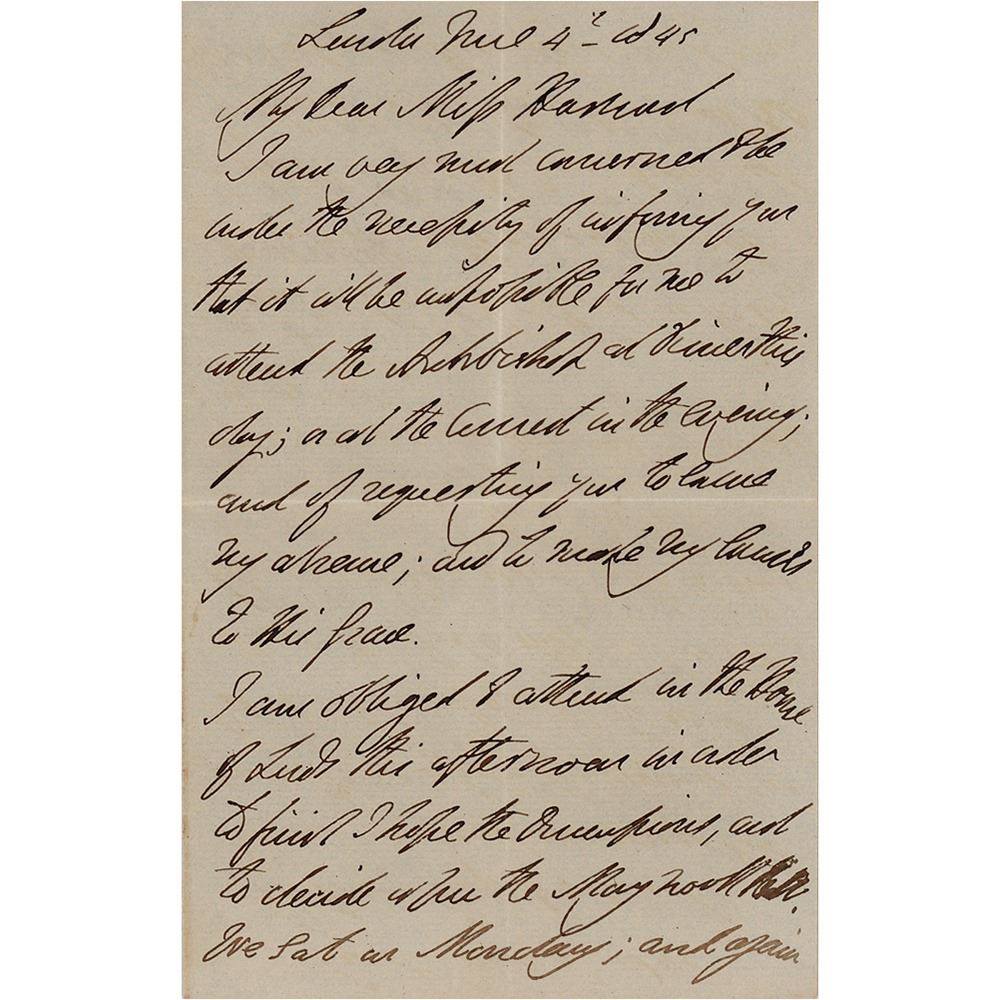 London June 4th 1845
My Dear Miss
I am very much concerned to be
under the necessity of informing you
that it will be impossible for me to
attend the Archbishop at dinner this
day; or at the Concert in the Evening;
and of requesting you to Excuse
my absence; and to make my Excuses
to His Grace.
I am obliged to attend in the House
of Lords this afternoon in order
to finish I hope the Discussions, and
to decide upon the Maynooth Bill.
We sat on Monday; and again